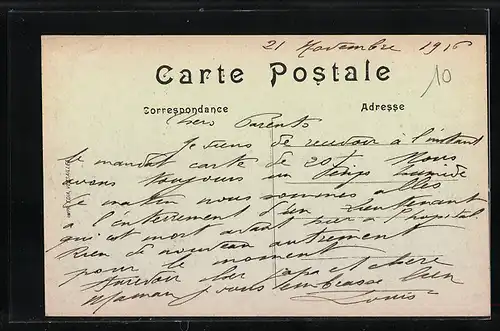 21 Novembre 1916
Carte Postale
10
Correspondance
Adresse
Chers Parents
Je viens de recevoir à l'instant
le mandat carte de 20f Nous
avons toujours un temps humide
ce matin nous sommes allés
a l'enterrement d'un Lieutenant
qui est mort avant hier a l'hopital
Rien de nouveau autrement
pour le moment
Aurevoir cher papa et chère
Maman je vous embrasse bien
Louis